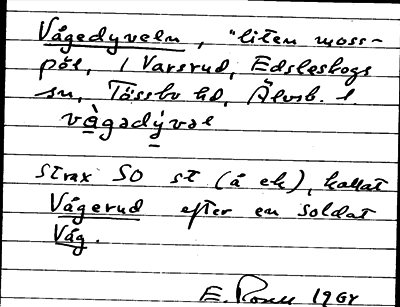 Vågedyveln, "liten moss-
pöl, i Varsrud, Edsleskogs
sn, Tössbo hd, Älvsb. l.
vågedývel
strax SO st (å ek), kallat
Vågerud efter en soldat
Våg.
E. 196